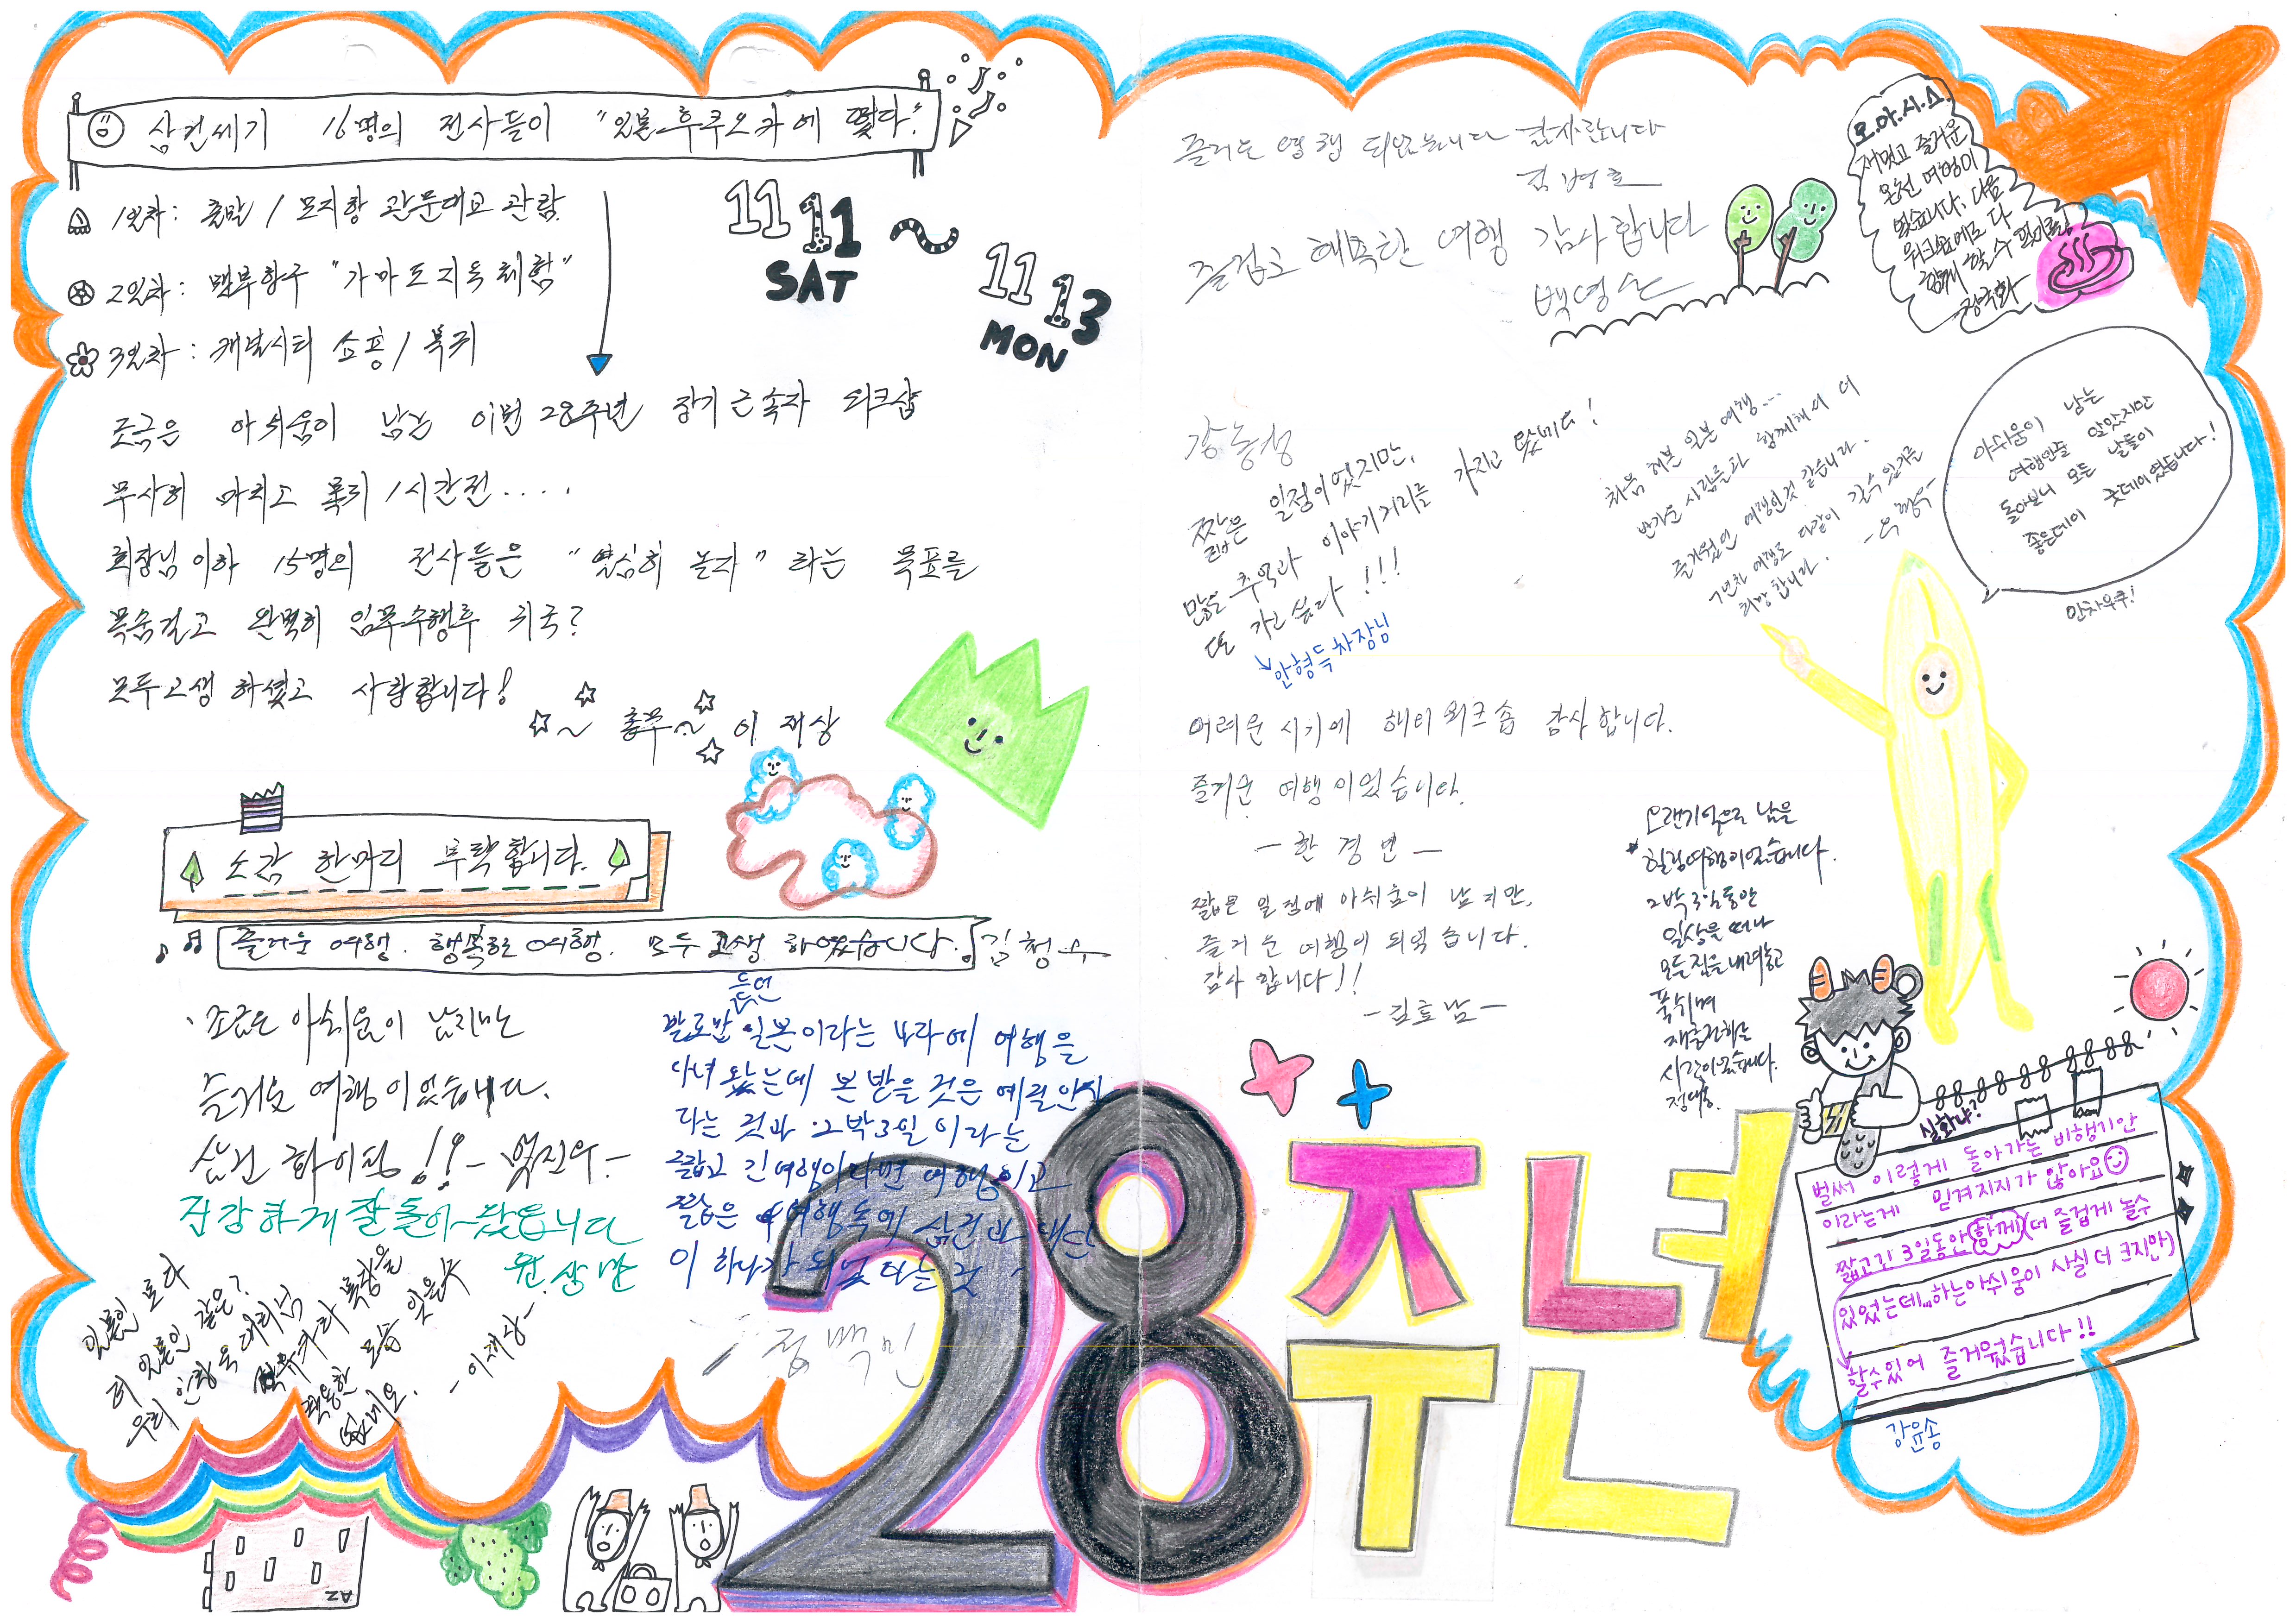 삼건세기 16명의 전사들이 "일본후쿠오카에 떴다."
1일차: 출발 / 모지항 관문대교 관람
2일차: 벳부항구 "가마도지옥체험"
3일차: 캐널시티 쇼핑 / 복귀
11 11 SAT ~ 11 13 MON
조금은 아쉬움이 남는 이번 28주년 장기근속자 워크샵
무사히 마치고 복귀 1시간전....
회장님이하 15명의 전사들은 "열심히 놀자" 라는 목표를
목숨걸고 완벽히 임무수행후 귀국?
모두고생 하셨고 사랑합니다!
~ 총무~ 이재상
소감 한마디 부탁합니다.
즐거운 여행. 행복한 여행. 모두 고생 하였습니다. 김청수
조금은 아쉬움이 남지만
즐거운 여행이었습니다.
삼건 화이팅!!
건강하게 잘 돌아 왔습니다
원상만
말로만 듣던 일본이라는 나라에 여행을
다녀 왔는데 본받을 것은
다는 것과 2박3일이라는
짧고 긴여행이라면 여행이고
짧은 여행속에 삼건과
이 하나가 되었다는 것
정백인
일본인 보다
더 일본인 같은?
우리
모습
-이재상-
즐거운 여행 되었습니다 감사합니다
즐겁고 행복한 여행 감사합니다
백영순
모.아.시.스.
재밌고 즐거운
온천 여행이
었습니다. 다음
워크숍에도 다
함께 할 수 있기를!
장국화
강동성
짧은 일정이었지만,
많은 추억과 이야기거리를 가지고 왔습니다!
또 가고 싶다!!!
안형득차장님
처음 해본 일본 여행...
반가운 사람들과 함께해서 더
즐거웠던 여행인것 같습니다.
7년차 여행도 다같이 갈수있기를
희망합니다.
아쉬움이 남는
여행인줄 알았지만
돌아보니 모든 날들이
좋은데이 굿데이였습니다!
어려운 시기에 해외워크숍 감사합니다.
즐거운 여행이었습니다.
-한경변-
짧은 일정에 아쉬움이 남지만,
즐거운 여행이 되었습니다.
감사합니다!!
-김호남-
오랜기억으로 남을
힐링여행이었습니다.
2박3일동안
일상을 떠나
모든짐을내려놓고
푹쉬며
재충전하는
시간이었습니다.
실화냐?
벌써 이렇게 돌아가는 비행기안
이라는게 믿겨지지가 않아요
짧고긴 3일동안 함께 (더 즐겁게 놀수
있었는데..하는아쉬움이 사실 더 크지만)
할수있어 즐거웠습니다!!
강윤송
28주년